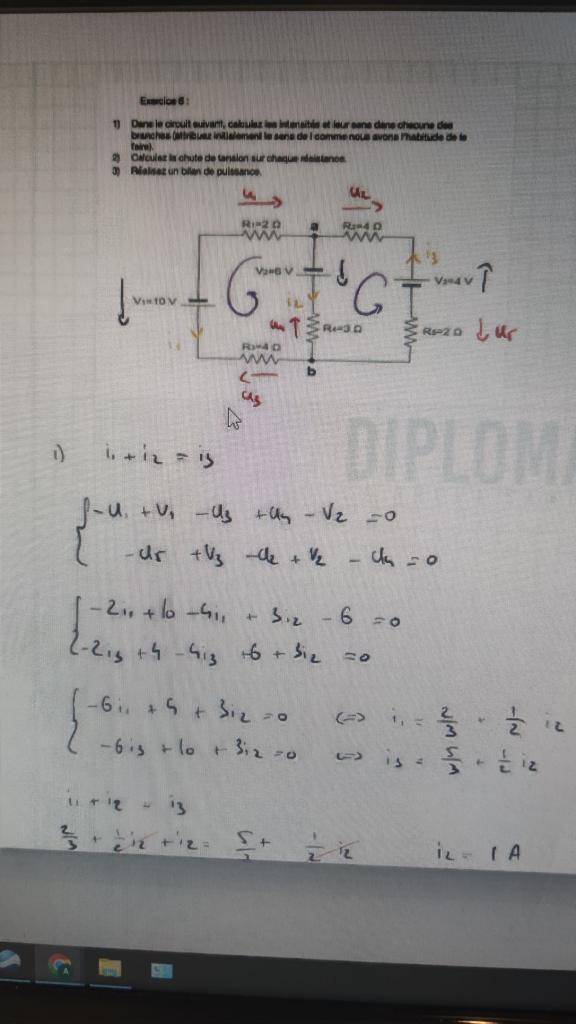 Exercice 6 :
1) Dans le circuit suivant, calculez les intensités et leur sens dans chacune des
branches (attribuez initialement le sens de I comme nous avons l'habitude de le
faire).
2) Calculez la chute de tension sur chaque résistance.
3) Réalisez un bilan de puissance.
u₁ u₂
R₁=2 Ω a R₂=4 Ω
i₃
V₂=6 V V₃=4 V
V₁=10 V i₂
u₄ R₄=3 Ω R₅=2 Ω u₅
i₁ R₃=4 Ω
b
u₃
DIPLOMA
1) i₁ + i₂ = i₃
-u₁ + V₁ - u₃ + u₄ - V₂ = 0
-u₅ + V₃ - u₂ + V₂ - u₄ = 0
-2i₁ + 10 - 4i₁ + 3i₂ - 6 = 0
-2i₃ + 4 - 4i₃ + 6 + 3i₂ = 0
-6i₁ + 4 + 3i₂ = 0 <=> i₁ = 2/3 + 1/2 i₂
-6i₃ + 10 + 3i₂ = 0 <=> i₃ = 5/3 + 1/2 i₂
i₁ + i₂ = i₃
2/3 + 1/2 i₂ + i₂ = 5/3 + 1/2 i₂ i₂ = 1 A